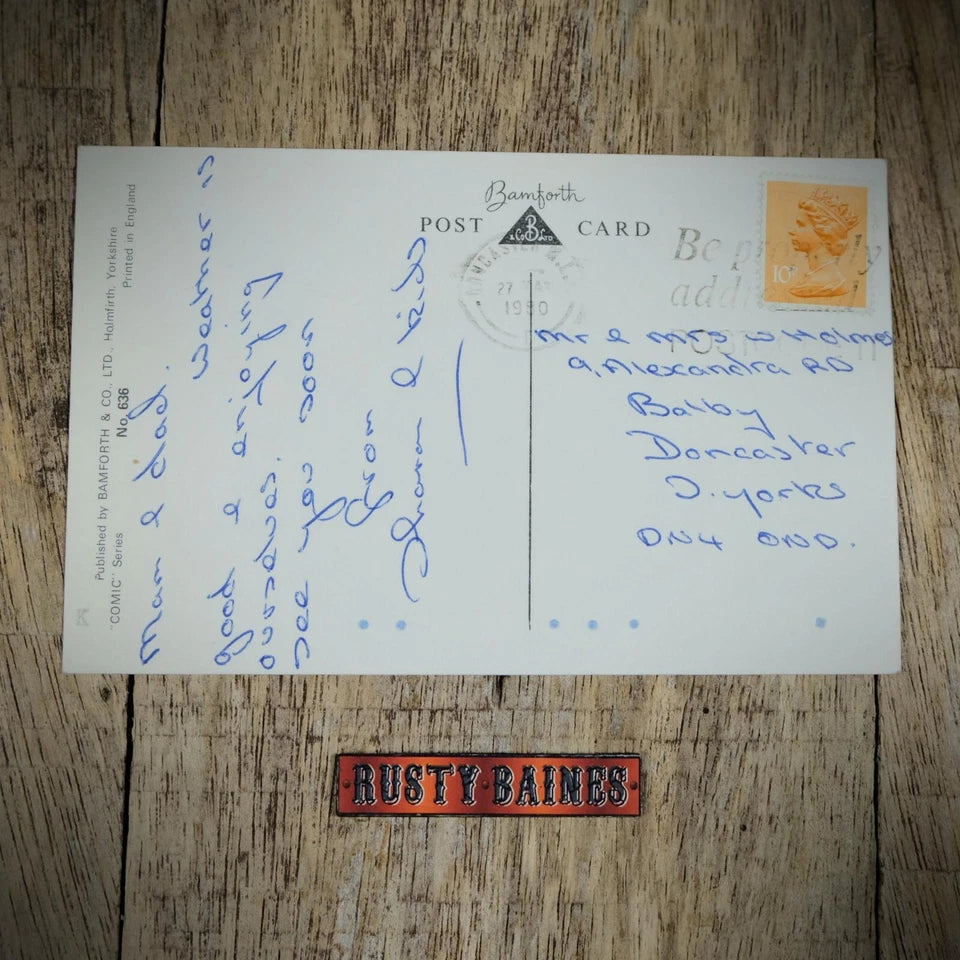 Published by BAMFORTH & CO., LTD., Holmfirth, Yorkshire
"COMIC" Series No. 636 Printed in England
Mam & dad.
weather is
good & enjoying
ourselves.
see you soon
from
& kids
Bamforth
POST CARD
B
& Co Ltd
27 MAY
1980
Be properly
10P
Mr & Mrs W Holmes
9, Alexandra RD
Balby
Doncaster
S. Yorks
DN4 0ND.
RUSTY BAINES